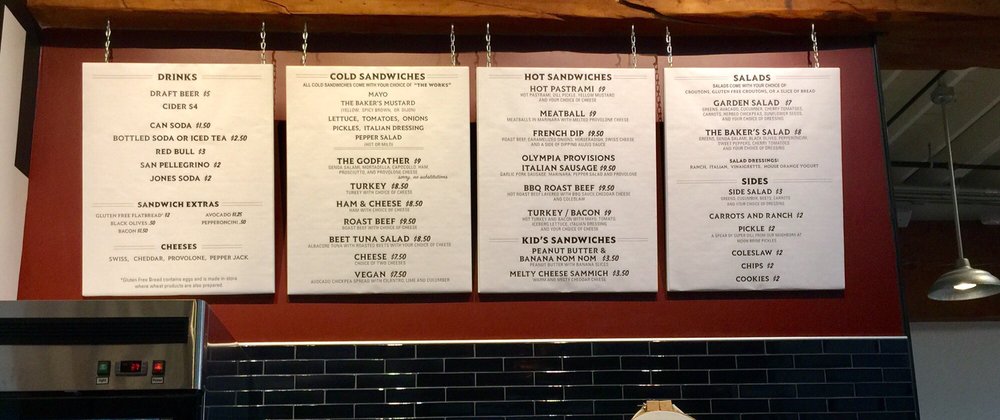 DRINKS
DRAFT BEER $5
CIDER $4
CAN SODA $1.50
BOTTLED SODA OR ICED TEA $2.50
RED BULL $3
SAN PELLEGRINO $2
JONES SODA $2
SANDWICH EXTRAS
GLUTEN FREE FLATBREAD* $2
AVOCADO $1.25
BLACK OLIVES .50
PEPPERONCINI .50
BACON $1.50
CHEESES
SWISS, CHEDDAR, PROVOLONE, PEPPER JACK
*Gluten Free Bread contains eggs and is made in store
where wheat products are also prepared.
COLD SANDWICHES
ALL COLD SANDWICHES COME WITH YOUR CHOICE OF "THE WORKS"
MAYO
THE BAKER'S MUSTARD
(YELLOW, SPICY BROWN, OR DIJON)
LETTUCE, TOMATOES, ONIONS
PICKLES, ITALIAN DRESSING
PEPPER SALAD
(HOT OR MILD)
THE GODFATHER $9
GENOA SALAMI, MORTADELLA, CAPOCOLLO, HAM,
PROSCIUTTO, AND PROVOLONE CHEESE
sorry, no substitutions
TURKEY $8.50
TURKEY WITH CHOICE OF CHEESE
HAM & CHEESE $8.50
HAM WITH CHOICE OF CHEESE
ROAST BEEF $9.50
ROAST BEEF WITH CHOICE OF CHEESE
BEET TUNA SALAD $8.50
ALBACORE TUNA WITH ROASTED BEETS WITH YOUR CHOICE OF CHEESE
CHEESE $7.50
CHOICE OF TWO CHEESES
VEGAN $7.50
AVOCADO CHICKPEA SPREAD WITH CILANTRO, LIME AND CUCUMBER
HOT SANDWICHES
HOT PASTRAMI $9
HOT PASTRAMI, DILL PICKLE, YELLOW MUSTARD
AND YOUR CHOICE OF CHEESE
MEATBALL $9
MEATBALLS IN MARINARA WITH MELTED PROVOLONE CHEESE
FRENCH DIP $9.50
ROAST BEEF, CARAMELIZED ONIONS, HORSERADISH, SWISS CHEESE
AND A SIDE OF DIPPING AU JUS SAUCE
OLYMPIA PROVISIONS
ITALIAN SAUSAGE $9.50
GARLIC PORK SAUSAGE, MARINARA, PEPPER SALAD AND PROVOLONE
BBQ ROAST BEEF $9.50
HOT ROAST BEEF LAYERED WITH BBQ SAUCE, CHEDDAR CHEESE
AND COLESLAW
TURKEY / BACON $9
HOT TURKEY AND BACON WITH MAYO, TOMATO,
ICEBERG LETTUCE, ITALIAN DRESSING
AND YOUR CHOICE OF CHEESE
KID'S SANDWICHES
PEANUT BUTTER &
BANANA NOM NOM $3.50
PEANUT BUTTER WITH BANANA SLICES
MELTY CHEESE SAMMICH $3.50
WARM AND MELTY CHEDDAR CHEESE
SALADS
SALADS COME WITH YOUR CHOICE OF
CROUTONS, GLUTEN FREE CROUTONS, OR A SLICE OF BREAD
GARDEN SALAD $7
GREENS, AVOCADO, CUCUMBER, CHERRY TOMATOES,
CARROTS, HERBED CHICKPEAS, SUNFLOWER SEEDS,
AND YOUR CHOICE OF DRESSING
THE BAKER'S SALAD $8
GREENS, GENOA SALAMI, BLACK OLIVES, PEPPERONCINI,
SWEET PEPPERS, CHERRY TOMATOES
AND YOUR CHOICE OF DRESSING
SALAD DRESSINGS:
RANCH, ITALIAN, VINAIGRETTE, HOUSE ORANGE YOGURT
SIDES
SIDE SALAD $3
GREENS, CUCUMBER, BEETS, CARROTS
AND YOUR CHOICE OF DRESSING
CARROTS AND RANCH $2
PICKLE $2
A SPEAR OF SUPER DILL FROM OUR NEIGHBORS AT
MOON BRINE PICKLES
COLESLAW $2
CHIPS $2
COOKIES $2